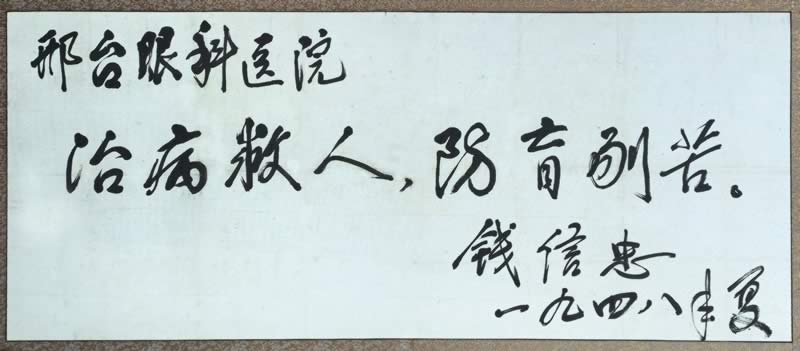 邢台眼科医院
治病救人,防盲苦。
钱信忠
一九四八年夏